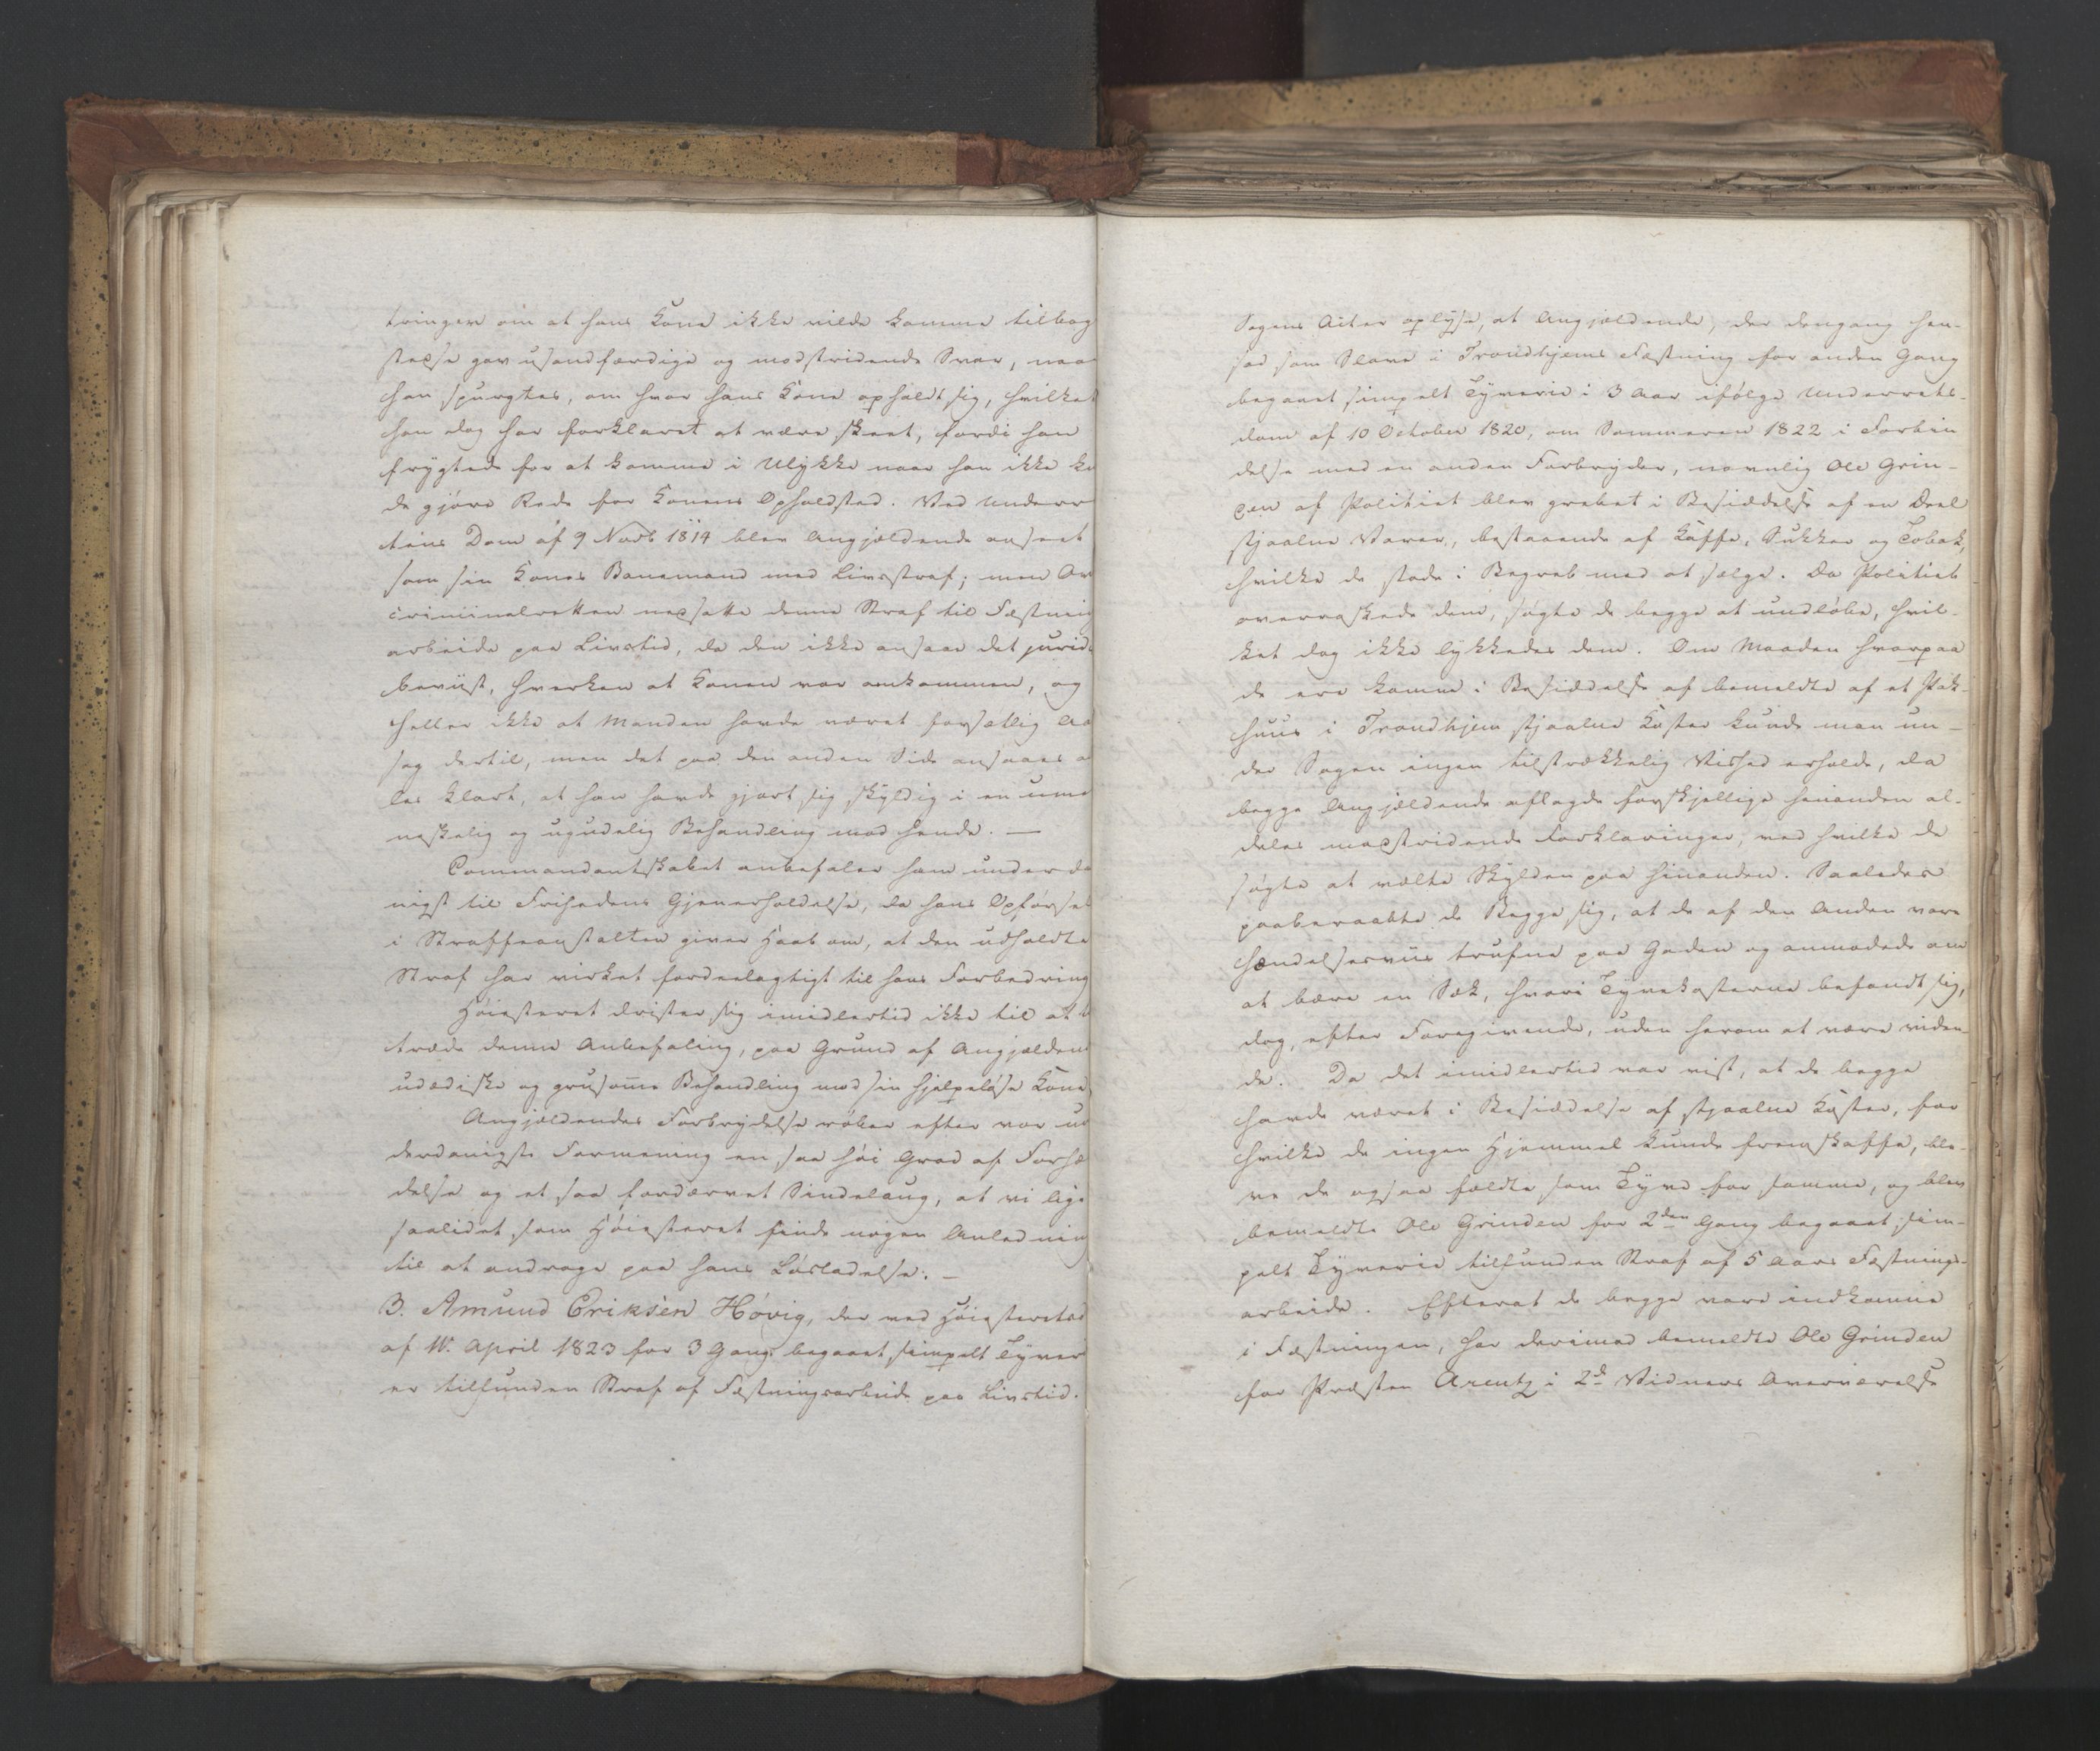 tringere om at hans Kone ikke vilde komme tilbag
stædse gav usandfærdige og modstridende Svar, naa
han spurgtes, om hvor hans Kone opholdt sig, hvilket
han dog har forklaret at være skeet, fordi han
frygtede for at komme i Ulykke naar han ikke ku
de gjøre Rede for Konens Opholdsted. Ved Underr
tens Dom af 9 Novb 1814 blev Angjældende anseet
som sin Kones Banemand med Livsstraf; men Ov
criminalretten nedsatte denne Straf til Fæstning
arbeide paa Livstid, da den ikke ansaae det jurid
beviist, hverken at Konen var omkommen, og
heller ikke at Manden havde været forsætlig Aa
sag dertil, men det paa den anden Side ansaaes a
les klart, at han havde gjort sig skyldig i en ume
neskelig og ugudelig Behandling mod hende. —
Commandantskabet anbefaler ham underda
nigst til Frihedens Gjenerholdelse, da hans Opførsel
i Straffeanstalten giver Haab om, at den udholdte
Straf har virket fordeelagtigt til hans Forbedring
Høiesteret drister sig imidlertid ikke til at
træde denne Anbefaling, paa Grund af Angjælden
udædiske og grusomme Behandling mod sin hjelpeløse Kone
Angjældendes Forbrydelse røber efter vor un
derdanigste Formening en saa høi Grad af Forhæ
delse og et saa fordærvet Sindelaug, at vi lige
saalidet som Høiesteret finde nogen Anledning
til at andrage paa hans Løsladelse. —
3. Amund Eriksen Høvig, der ved Høiesteretsd
af 11. April 1823 for 3 Gang begaaet simpelt Tyver
er tilfunden Straf af Fæstningsarbeide paa Livstid.
Sagens Acter oplyse, at Angjældende, der dengang hen-
sad som Slave i Trondhjems Fæstning for anden Gang
begaaet simpelt Tyverie i 3 Aar ifølge Underrets-
dom af 10 October 1820, om Sommeren 1822 i Forbin
delse med en anden Forbryder, navnlig Ole Grin-
den af Politiet blev grebet i Besiddelse af en Deel
stjaalne Varer, bestaaende af Kaffe, Sukker og Tobak,
hvilke de stode i Begreb med at sælge. Da Politiet
overraskede dem, søgte de begge at undløbe, hvil-
ket dog ikke lykkedes dem. Om Maaden hvorpaa
de ere komne i Besiddelse af bemeldte af et Pak-
huus i Trondhjem stjaalne Koster kunde man un-
der Sagen ingen tilstrækkelig Vished erholde, da
begge Angjældende aflagde forskjellige hinanden al-
deles modstridende Forklaringer, ved hvilke de
søgte at vælte Skylden paa hinanden. Saaledes
paaberaabte de Begge sig, at de af den Anden vare
hændelsesviis trufne paa Gaden og anmodede om
at bære en Sæk, hvori Tyvekosterne befandt sig,
dog, efter Foregivende, uden herom at være viden-
de. Da det imidlertid var vist, at de begge
havde været i Besiddelse af stjaalne Koster, for
hvilke de ingen Hjemmel kunde fremskaffe, ble-
ve de ogsaa fældte som Tyve for samme, og blev
bemeldte Ole Grinden for 2den Gang begaaet sim-
pelt Tyverie tilfunden Straf af 5 Aars Fæstnings-
arbeide. Efterat de begge vare indkomne
i Fæstningen, har derimod bemeldte Ole Grinden
for Præsten Arentz i 2de Vidners Overværelse